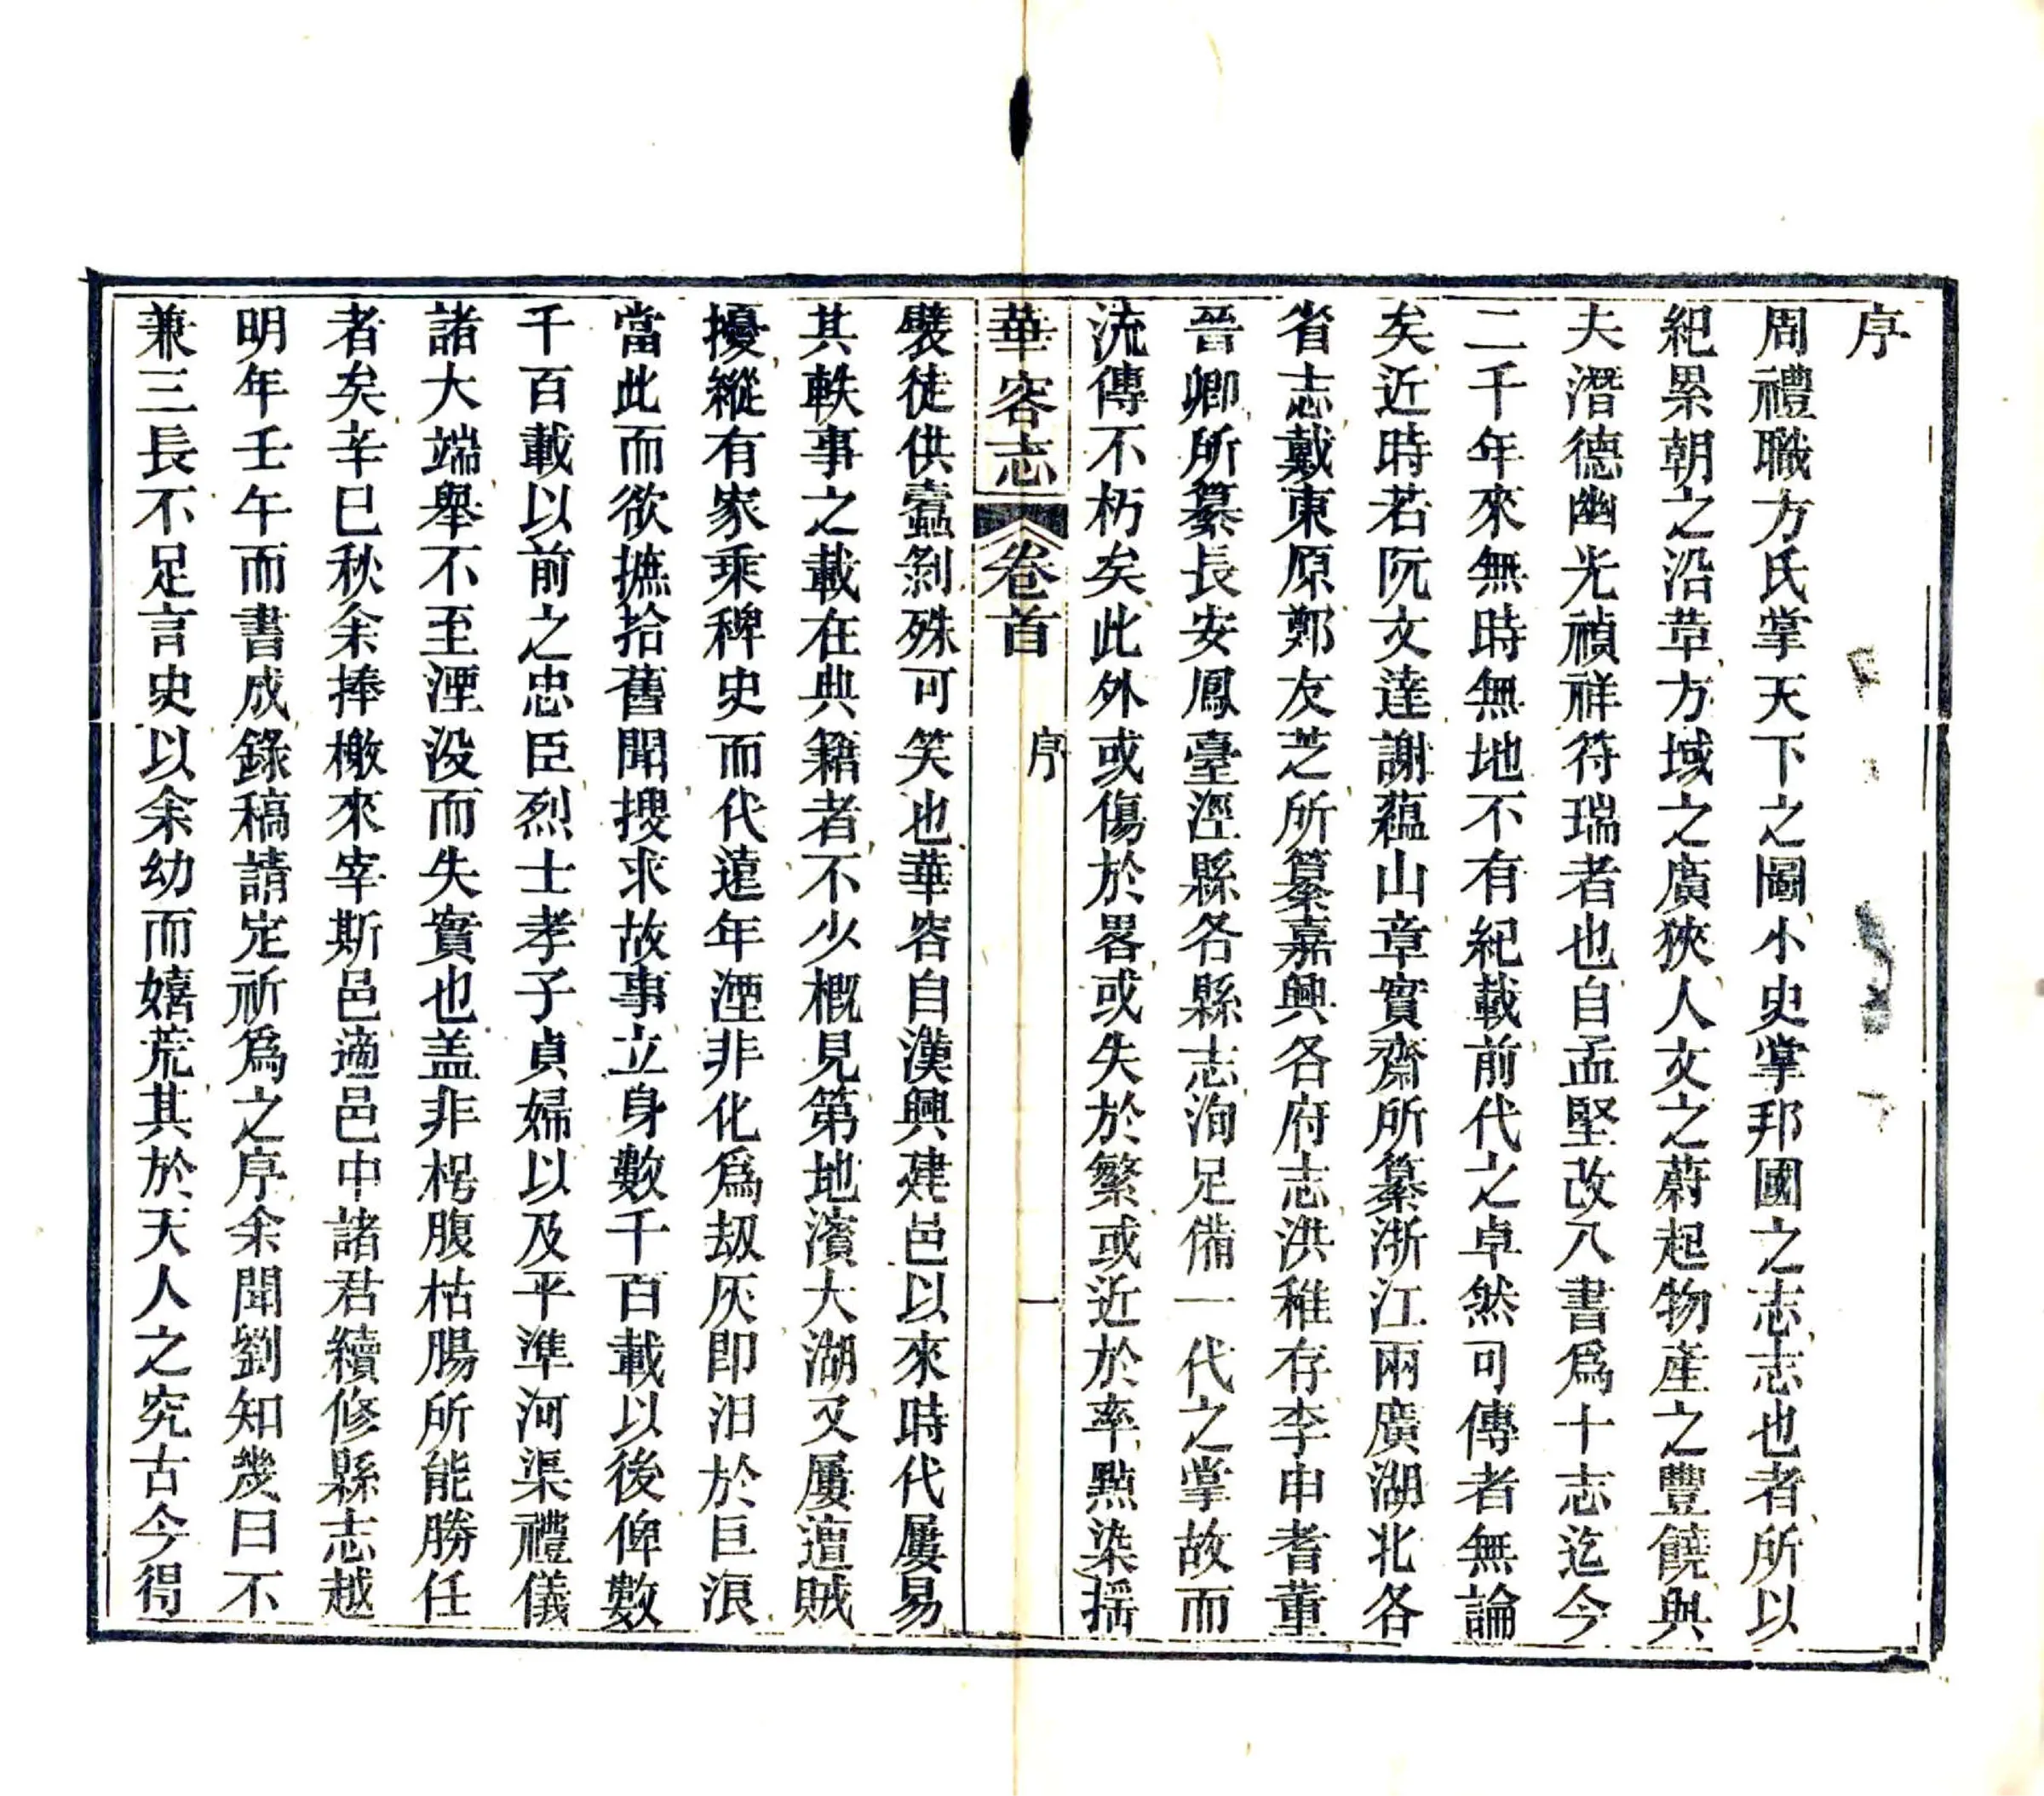 序
周禮職方氏掌天下之圖小史掌邦國之志志也者所以
紀累朝之沿革方域之廣狹人文之蔚起物產之豐饒與
夫潛德幽光禎祥符瑞者也自孟堅改八書爲十志迄今
二千年來無時無地不有紀載前代之卓然可傳者無論
矣近時若阮文達謝蘊山章實齋所纂浙江兩廣湖北各
省志戴東原鄭友芝所纂嘉興各府志洪稚存李申耆董
晉卿所纂長安鳳臺涇縣各縣志洵足備一代之掌故而
流傳不朽矣此外或傷於畧或失於繁或近於率點染揺
華容志
卷首
序
一
襞徒供蠹剝殊可笑也華容自漢興建邑以來時代屢易
其軼事之載在典籍者不少概見第地濱大湖又屢遭賊
擾縱有家乘稗史而代遠年湮非化爲刼灰即汨於巨浪
當此而欲摭拾舊聞搜求故事立身數千百載以後俾數
千百載以前之忠臣烈士孝子貞婦以及平準河渠禮儀
諸大端舉不至湮沒而失實也盖非枵腹枯腸所能勝任
者矣辛巳秋余捧檄來宰斯邑適邑中諸君續修縣志越
明年壬午而書成錄稿請定祈爲之序余聞劉知幾曰不
兼三長不足言史以余幼而嬉荒其於天人之究古今得